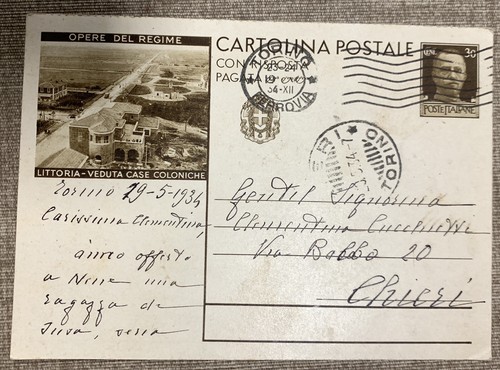 OPERE DEL REGIME
LITTORIA - VEDUTA CASE COLONICHE
CARTOLINA POSTALE
CON RISPOSTA
PAGATA
TORINO
23-24
34-XII
FERROVIA
30
POSTE ITALIANE
TORINO
Torino 29-5-1934
Carissima Clementina,
offerto
a una
ragazza da
Gentil Signorina
Clementina
Via Babbo 20
Chieri